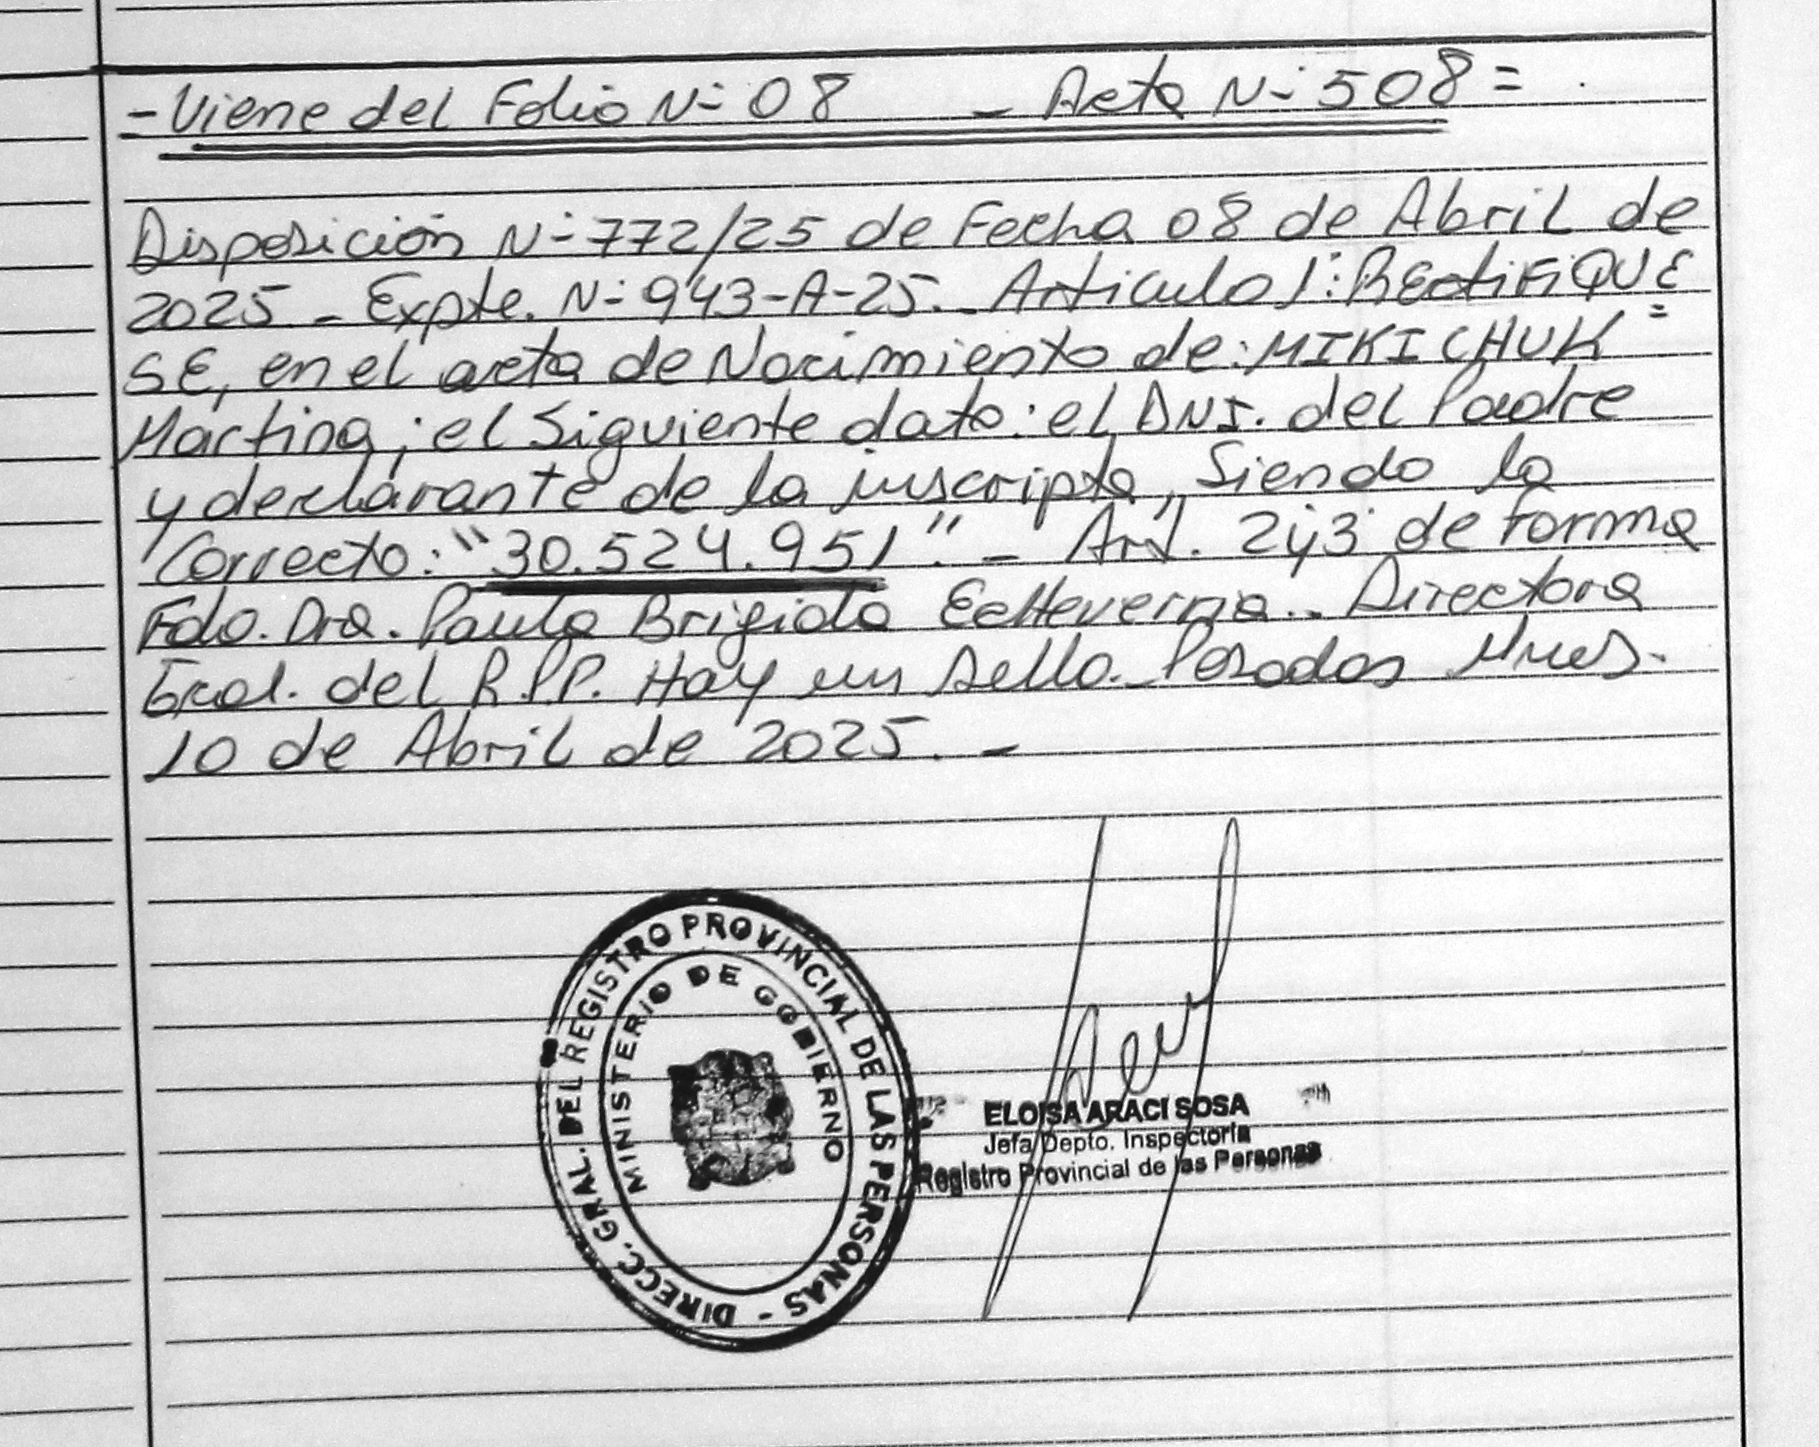 - Viene del Folio N- 08 - Acta N- 508 =
Disposición N- 772/25 de Fecha 08 de Abril de
2025 - Expte. N- 943-A-25. - Articulo 1: REctiFiQUE=
SE, en el acta de Nacimiento de: MIKICHUK
Martina; el Siguiente dato: el DNI. del Padre
y declarante de la inscripta, Siendo lo
Correcto: "30.524.951". - Art. 2y3 de Forma
Fdo. Dra. Paula Brigida Echeverria. - Directora
Gral. del R.P.P. Hay un sello. - Posadas Mnes.
10 de Abril de 2025. -
DIRECC. GRAL. DEL REGISTRO PROVINCIAL DE LAS PERSONAS -
MINISTERIO DE GOBIERNO
ELOISA ARACI SOSA
Jefa Depto. Inspectoría
Registro Provincial de las Personas